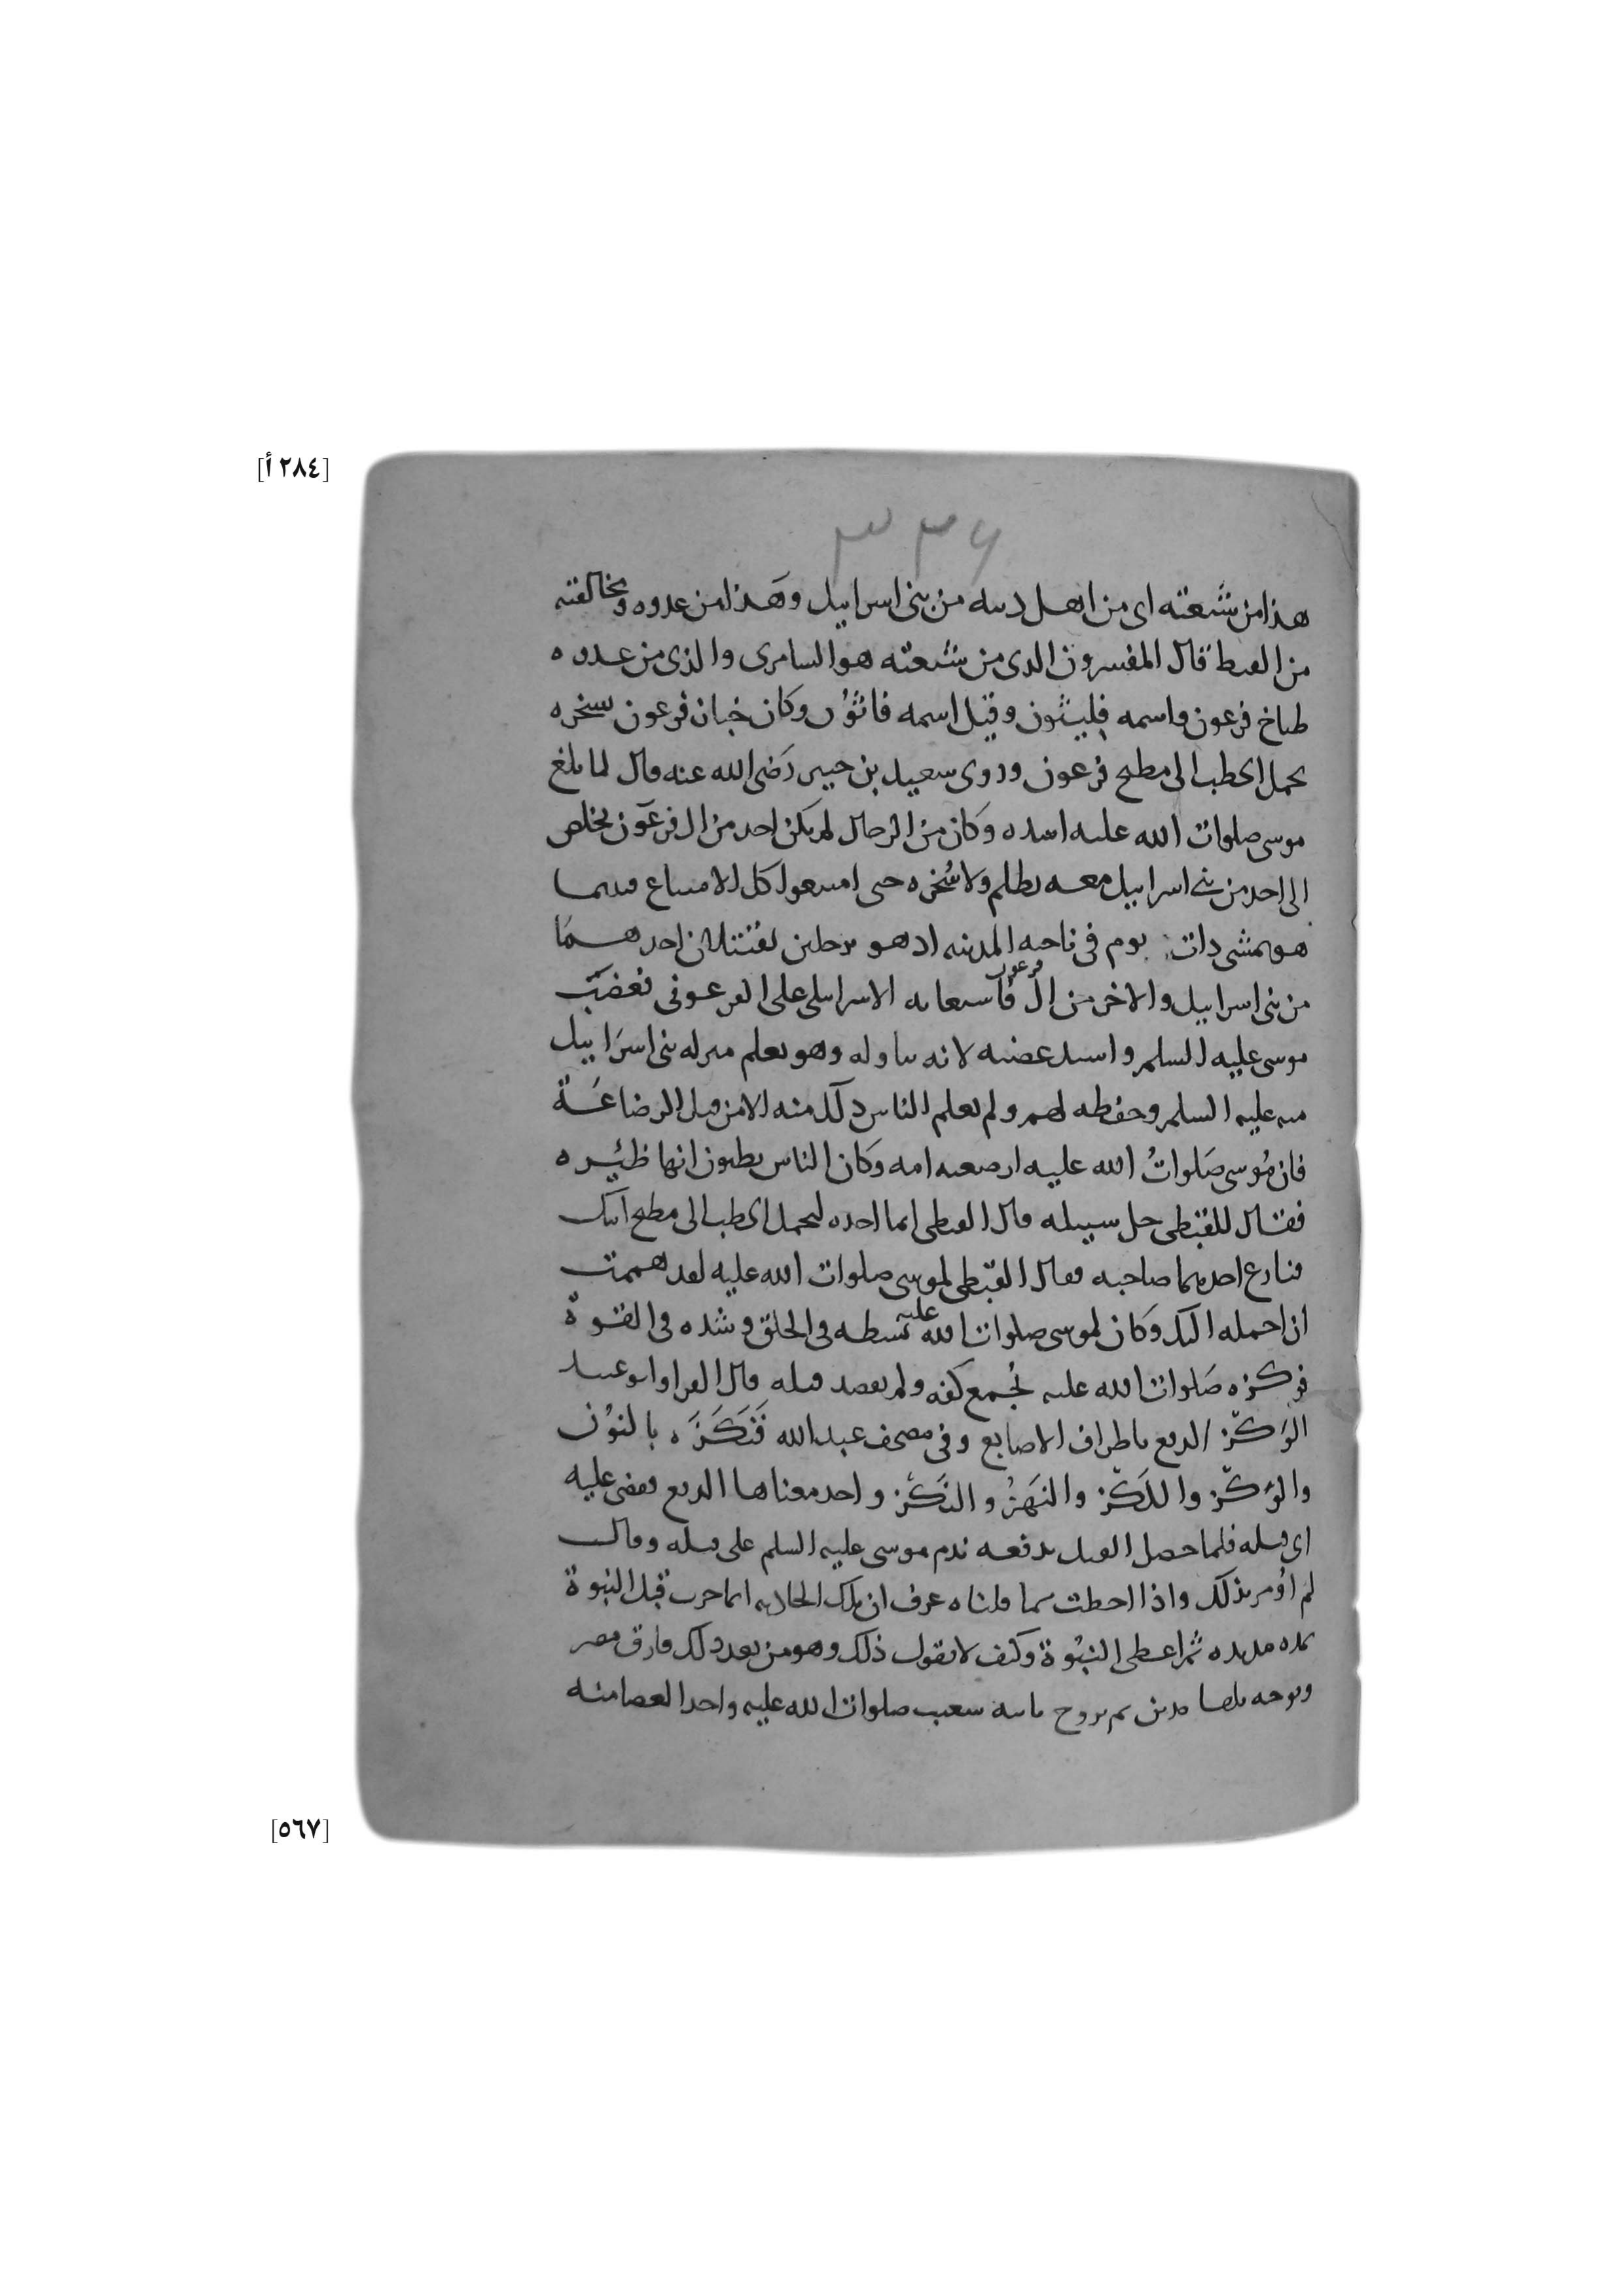 [٢٨٤ أ]
٣٣٦
هذا من شيعته اى من اهل دينه من بنى اسراييل وهذا من عدوه ومخالفته
من القبط قال المفسرون الذى من شيعته هو السامرى والذى من عدوه
طباخ فرعون واسمه فليثون وقيل اسمه فاثور وكان خباز فرعون يسخره
بحمل الحطب الى مطبخ فرعون وروى سعيد بن جبير رضى الله عنه قال لما بلغ
موسى صلوات الله عليه اشده وكان من الرجال لم يكن احد من ال فرعون يخلص
الى احد من بنى اسراييل معه بظلم ولا سُخره حتى امتنعوا كل الامتناع فبينما
هو يمشى ذات يوم فى ناحيه المدينه اذ هو برجلين يقتتلان احدهما
من بنى اسراييل والاخر من ال فرعون فاستغاثه الاسرايلى على الفرعونى فغضب
موسى عليه السلم واشتد غضبه لانه تناوله وهو يعلم منزله بنى اسراييل
منه عليه السلم وحفظه لهم ولم يعلم الناس ذلك منه الا من قبل الرضاعة
فان مُوسى صَلواتُ الله عليه ارضعته امه وكان الناس يظنون انها ظئيره
فقال للقبطى خل سبيله قال القبطى انما اخذه ليحمل الحطب الى مطبخ ابيك
فنازع احدهما صاحبه فقال القبطى لموسى صلوات الله عليه لقد هممت
ان احمله اليك وكان لموسى صلوات الله عليه بسطه فى الخلق وشده فى القوة
فوكزه صَلوات الله عليه بجُمع كفه ولم يعمد قتله قال الفرا وابو عبيد
الوَكز الدفع باطراف الاصابع وفى مصحف عبد الله فَنَكَزَه بالنوُن
والوَكز واللَكز والنَهَزُ والنَكز واحد معناها الدفع فقضى عليه
اى قتله فلما حصل القتل بدفعه ندم موسى عليه السلم على قتله وقال
لم اُومر بذلك واذا احطت بما قلناه عرف ان تلك الحادثه انما جرت قبل النبوة
بمده مديده ثم اعطى النبُوة وكيف لا نقول ذلك وهو من بعد ذلك فارق مصر
وتوجه تلقا مدين ثم تزوج بابنه شعيب صلوات الله عليه واخذ العصا منه
[٥٦٧]